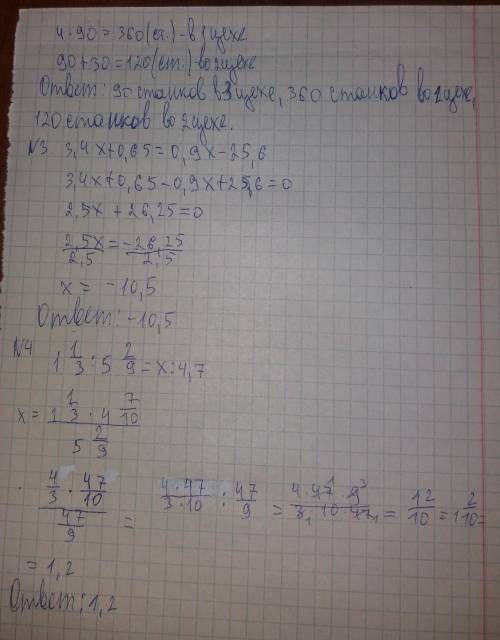 4·90=360(ст.)-в 1 цехе
90+30=120(ст.)-во 2 цехе
Ответ: 90 станков в 3 цехе, 360 станков во 1 цехе,
120 станков во 2 цехе.
№3 3,4x+0,65=0,9x-25,6
3,4x+0,65-0,9x+25,6=0
2,5x+26,25=0
2,5x/2,5=-26,25/2,5
x=-10,5
Ответ:-10,5
№4 1 1/3:5 2/9=x:4,7
x=1 1/3·4 7/10 / 5 2/9
4/3·47/10 / 47/9 = 4·47/3·10:47/9=4·47·9/3·10·47=12/10=1 2/10=
=1,2
Ответ:1,2